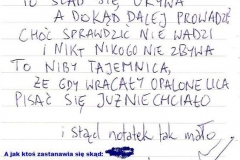 TU ŚLAD SIĘ URYWA
A DOKĄD DALEJ PROWADZI
CHOĆ SPRAWDZIĆ NIE WADZI
I NIKT NIKOGO NIE ZBYWA
TO NIBY TAJEMNICA,
ŻE GDY WRACAŁY OPALONE LICA
PISAĆ SIĘ JUŻ NIE CHCIAŁO
i stąd notatek tak mało
A jak ktoś zastanawia się skąd: